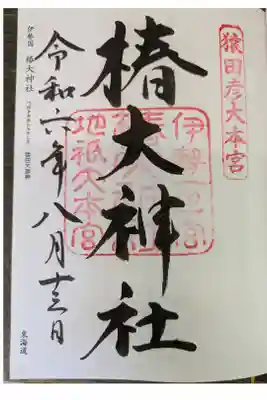 猿田彦大本宮
椿大神社
伊勢一之宮
地祇大本宮
令和六年八月十三日
伊勢国 椿大神社
東海道